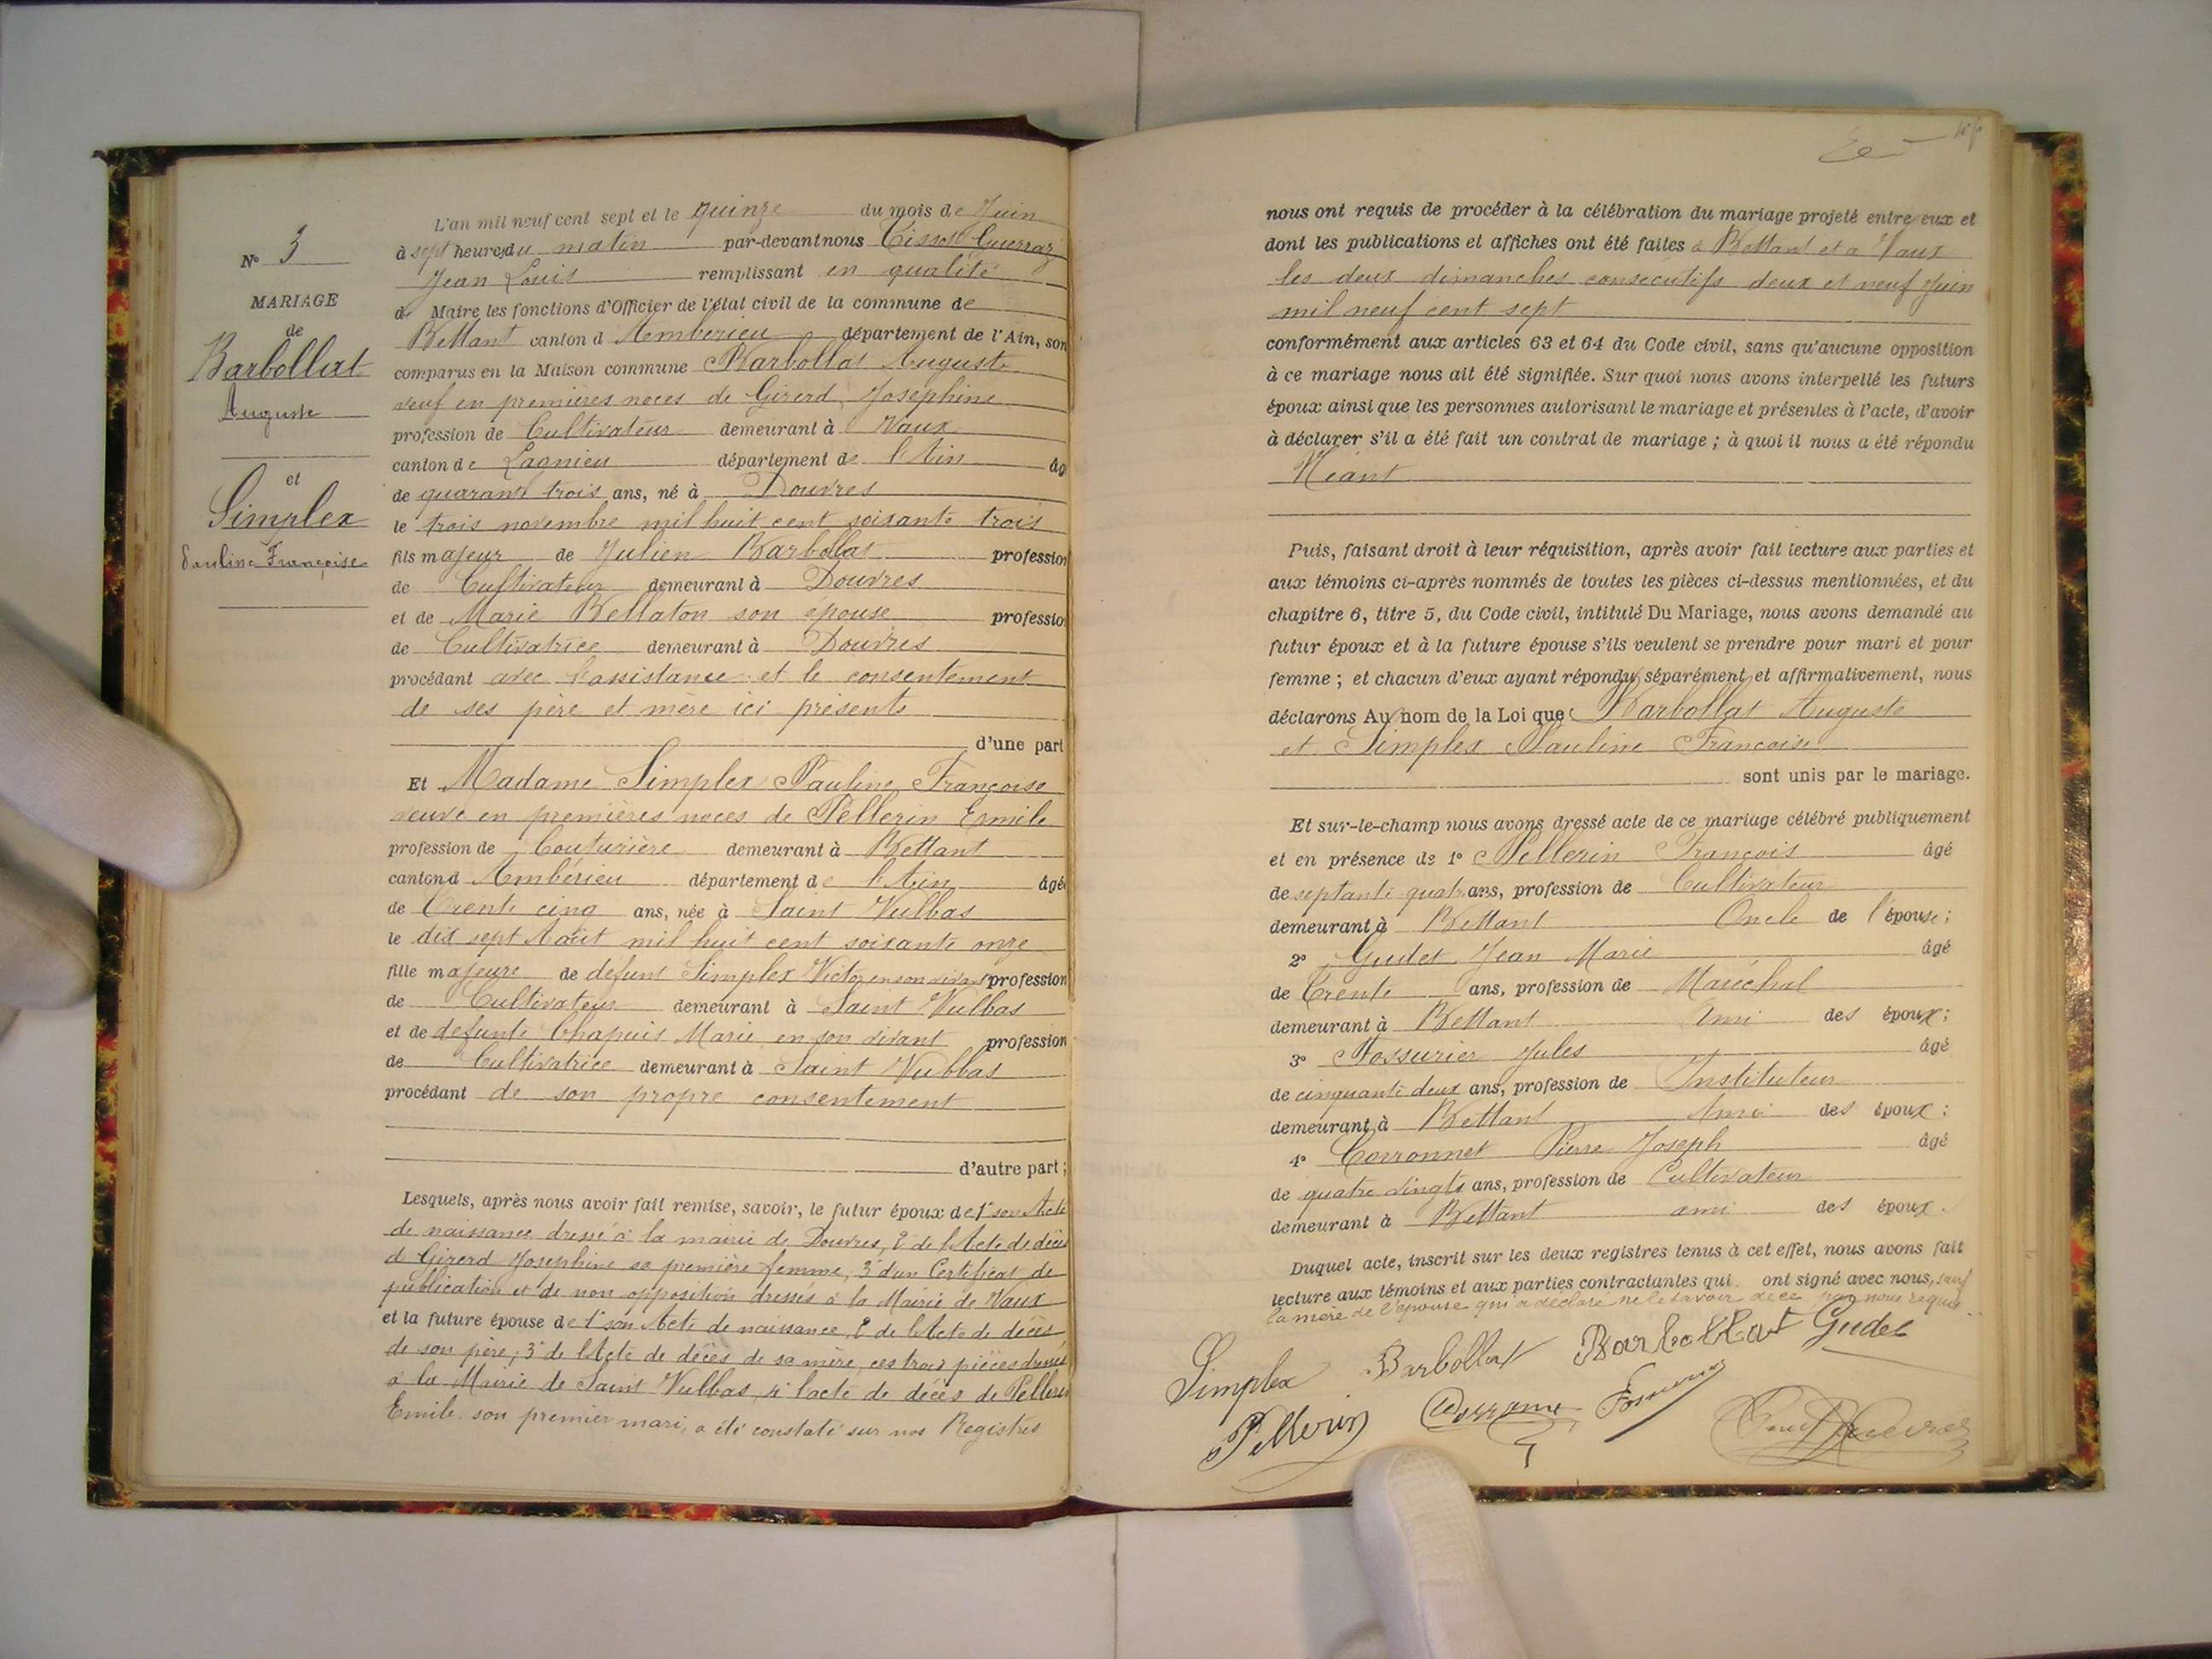 L'an mil neuf cent sept et le quinze du mois de Juin
N° 3
à sept heures du matin par-devant nous Tissot Guerraz
Jean Louis remplissant en qualité
MARIAGE
de Maire les fonctions d'Officier de l'état civil de la commune de
de
Bettant canton d'Ambérieu département de l'Ain, son
Barbollat
comparus en la Maison commune Barbollat Auguste
Auguste
veuf en premières noces de Girerd Josephine
profession de Cultivateur demeurant à Vaux
canton de Lagnieu département de l'Ain âg
et
de quarante trois ans, né à Douvres
Simplex
le trois novembre mil huit cent soixante trois
Pauline Françoise
fils majeur de Julien Barbollat profession
de Cultivateur demeurant à Douvres
et de Marie Bellaton son epouse professio
de Cultivatrice demeurant à Douvres
procédant avec l'assistance et le consentement
de ses père et mère ici présents
d'une part
Et Madame Simplex Pauline Françoise
veuve en premières noces de Pellerin Emile
profession de Couturière demeurant à Bettant
canton d'Ambérieu département de l'Ain âgé
de Trente cinq ans, née à Saint Vulbas
le dix sept Août mil huit cent soixante onze
fille majeure de defunt Simplex Victor en son vivant profession
de Cultivateur demeurant à Saint Vulbas
et de defunte Chapuis Marie en son vivant profession
de Cultivatrice demeurant à Saint Vulbas
procédant de son propre consentement
d'autre part ;
Lesquels, après nous avoir fait remise, savoir, le futur époux de 1° son Acte
de naissance dressé à la mairie de Douvres, 2° de l'Acte de décès
d Girerd Josephine sa première femme, 3° d'un Certificat de
publication et de non opposition dressés à la Mairie de Vaux
et la future épouse de 1° son Acte de naissance, 2° de l'Acte de décès
de son père, 3° de l'Acte de décès de sa mère, ces trois pièces dressés
à la Mairie de Saint Vulbas, 4° l'acte de décès de Pellerin
Emile son premier mari, a été constaté sur nos Registres
nous ont requis de procéder à la célébration du mariage projeté entre eux et
dont les publications et affiches ont été faites à Bettant et à Vaux
les deux dimanches consecutifs deux et neuf Juin
mil neuf cent sept
conformément aux articles 63 et 64 du Code civil, sans qu'aucune opposition
à ce mariage nous ait été signifiée. Sur quoi nous avons interpellé les futurs
époux ainsi que les personnes autorisant le mariage et présentes à l'acte, d'avoir
à déclarer s'il a été fait un contrat de mariage ; à quoi il nous a été répondu
Néant
Puis, faisant droit à leur réquisition, après avoir fait lecture aux parties et
aux témoins ci-après nommés de toutes les pièces ci-dessus mentionnées, et du
chapitre 6, titre 5, du Code civil, intitulé Du Mariage, nous avons demandé au
futur époux et à la future épouse s'ils veulent se prendre pour mari et pour
femme ; et chacun d'eux ayant répondu séparément et affirmativement, nous
déclarons Au nom de la Loi que Barbollat Auguste
et Simplex Pauline Françoise
sont unis par le mariage.
Et sur-le-champ nous avons dressé acte de ce mariage célébré publiquement
et en présence de 1° Pellerin François âgé
de septante quatre ans, profession de Cultivateur
demeurant à Bettant Oncle de l'épouse ;
2° Gudet Jean Marie âgé
de Trente ans, profession de Maréchal
demeurant à Bettant Ami des époux ;
3° Fossurier Jules âgé
de cinquante deux ans, profession de Instituteur
demeurant à Bettant Ami des époux ;
4° Corronnet Pierre Joseph âgé
de quatre vingts ans, profession de Cultivateur
demeurant à Bettant ami des époux.
Duquel acte, inscrit sur les deux registres tenus à cet effet, nous avons fait
lecture aux témoins et aux parties contractantes qui ont signé avec nous, sauf
la mère de l'epouse qui a déclaré ne le savoir de ce par nous requis
Simplex Barbollat Barbollat Gudet
Pellerin